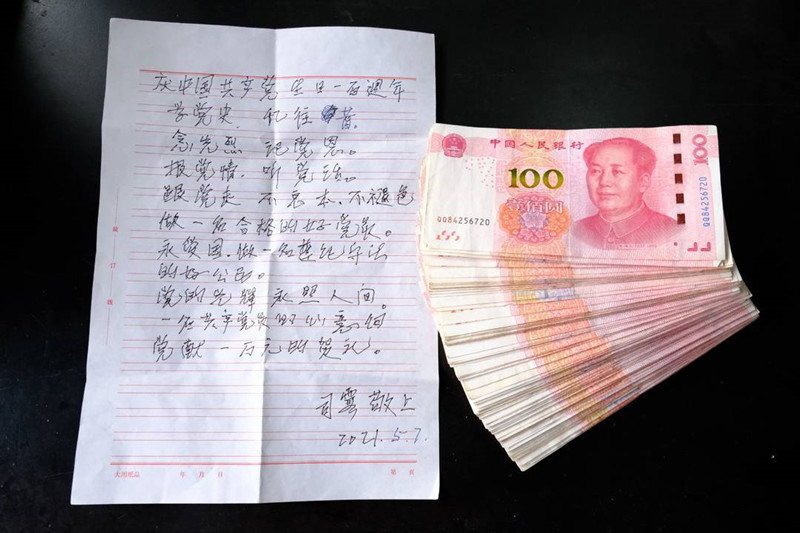 庆中国共产党生日一百週年
学党史 忆往昔
念先烈 记党恩。
报党情 听党话。
跟党走 不忘本、不褪色
做一名合格的好党员。
永爱国、做一名遵纪守法
的好公民。
党的光辉永照人间。
一名共产党员的心意向
党献一万元的贺礼。
司雲 敬上
2021.5.7.
装订线
年 月 日
第 页
中国人民银行
100
100
QQ84256720
QQ84256720
壹佰圆
100